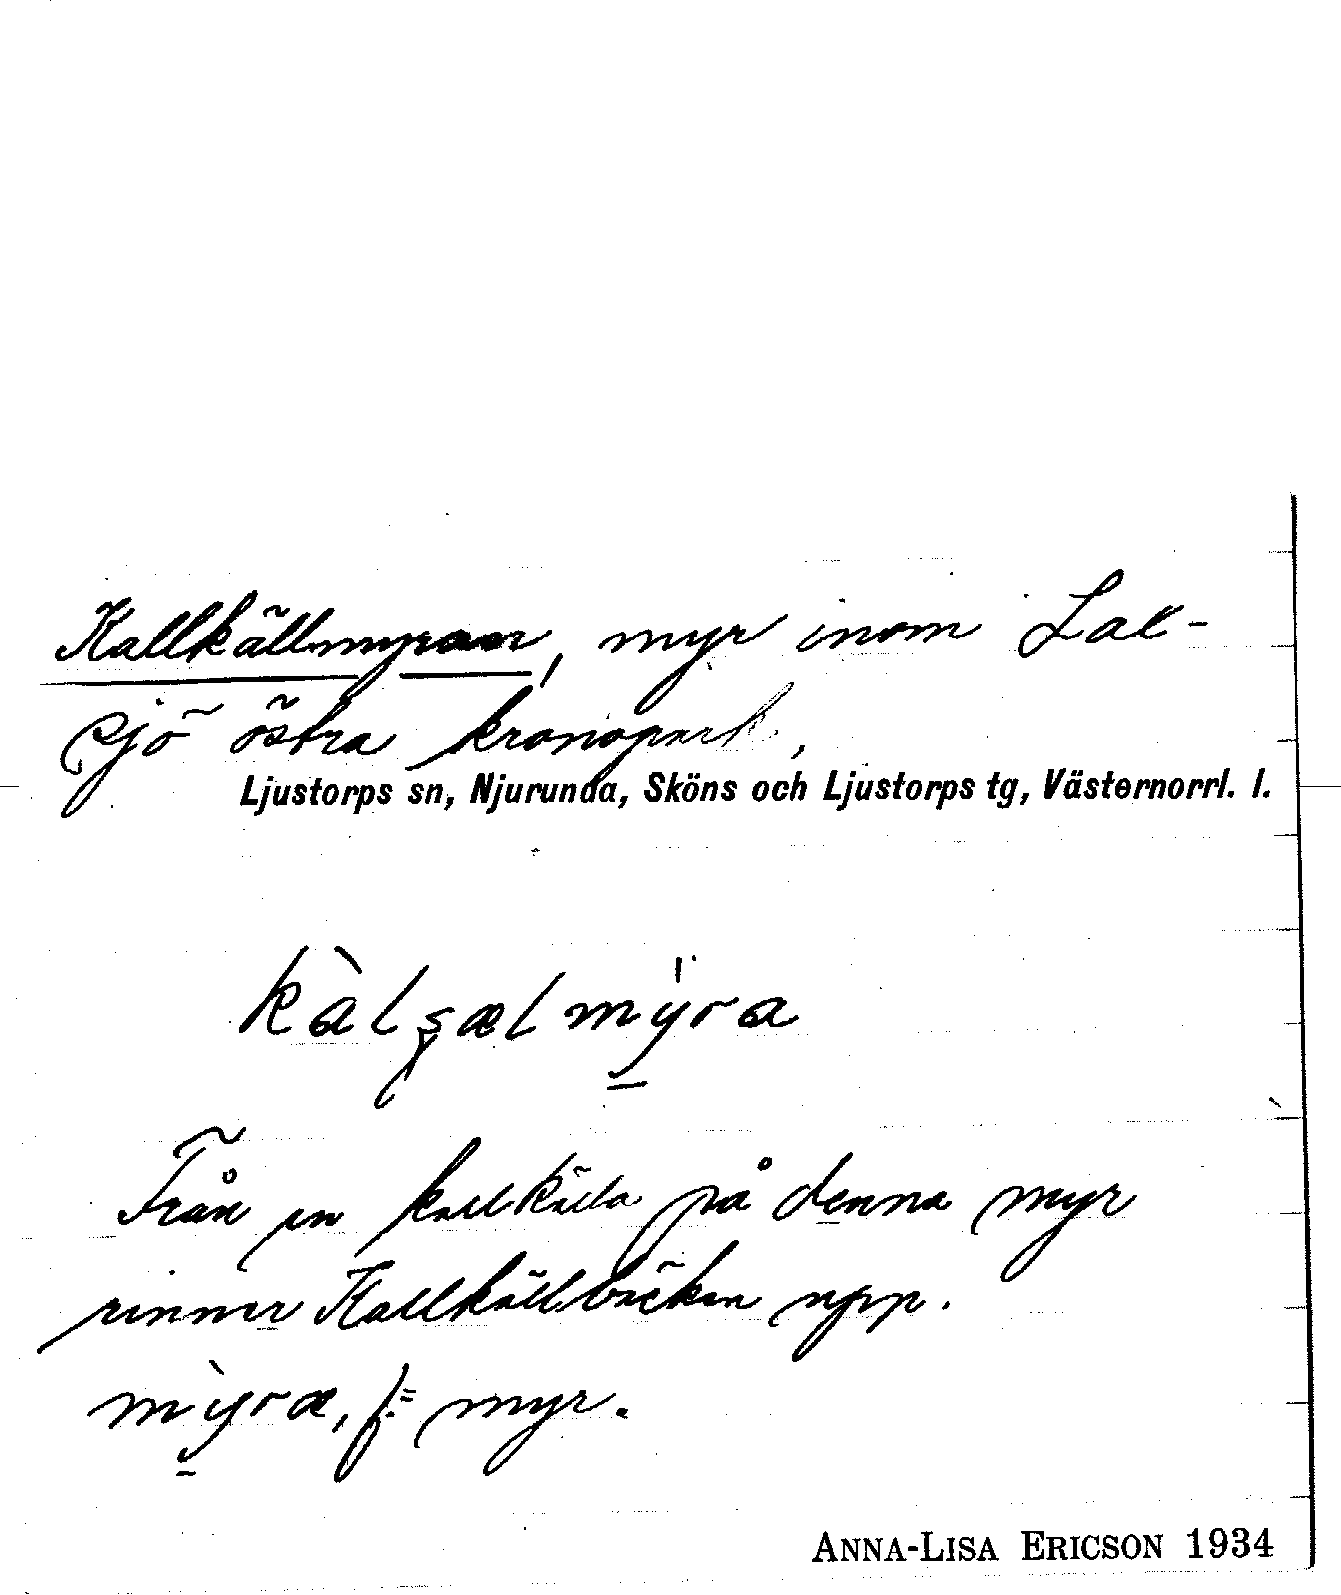 Kallkällmyran, myr inom Lax-
sjö östra kronopark,
Ljustorps sn, Njurunda, Sköns och Ljustorps tg, Västernorrl. l.
kàlʂælmy̠ra
Från en kallkälla på denna myr
rinner Kallkällbäcken upp.
mỳ̠ra, f. = myr.
ANNA-LISA ERICSON 1934